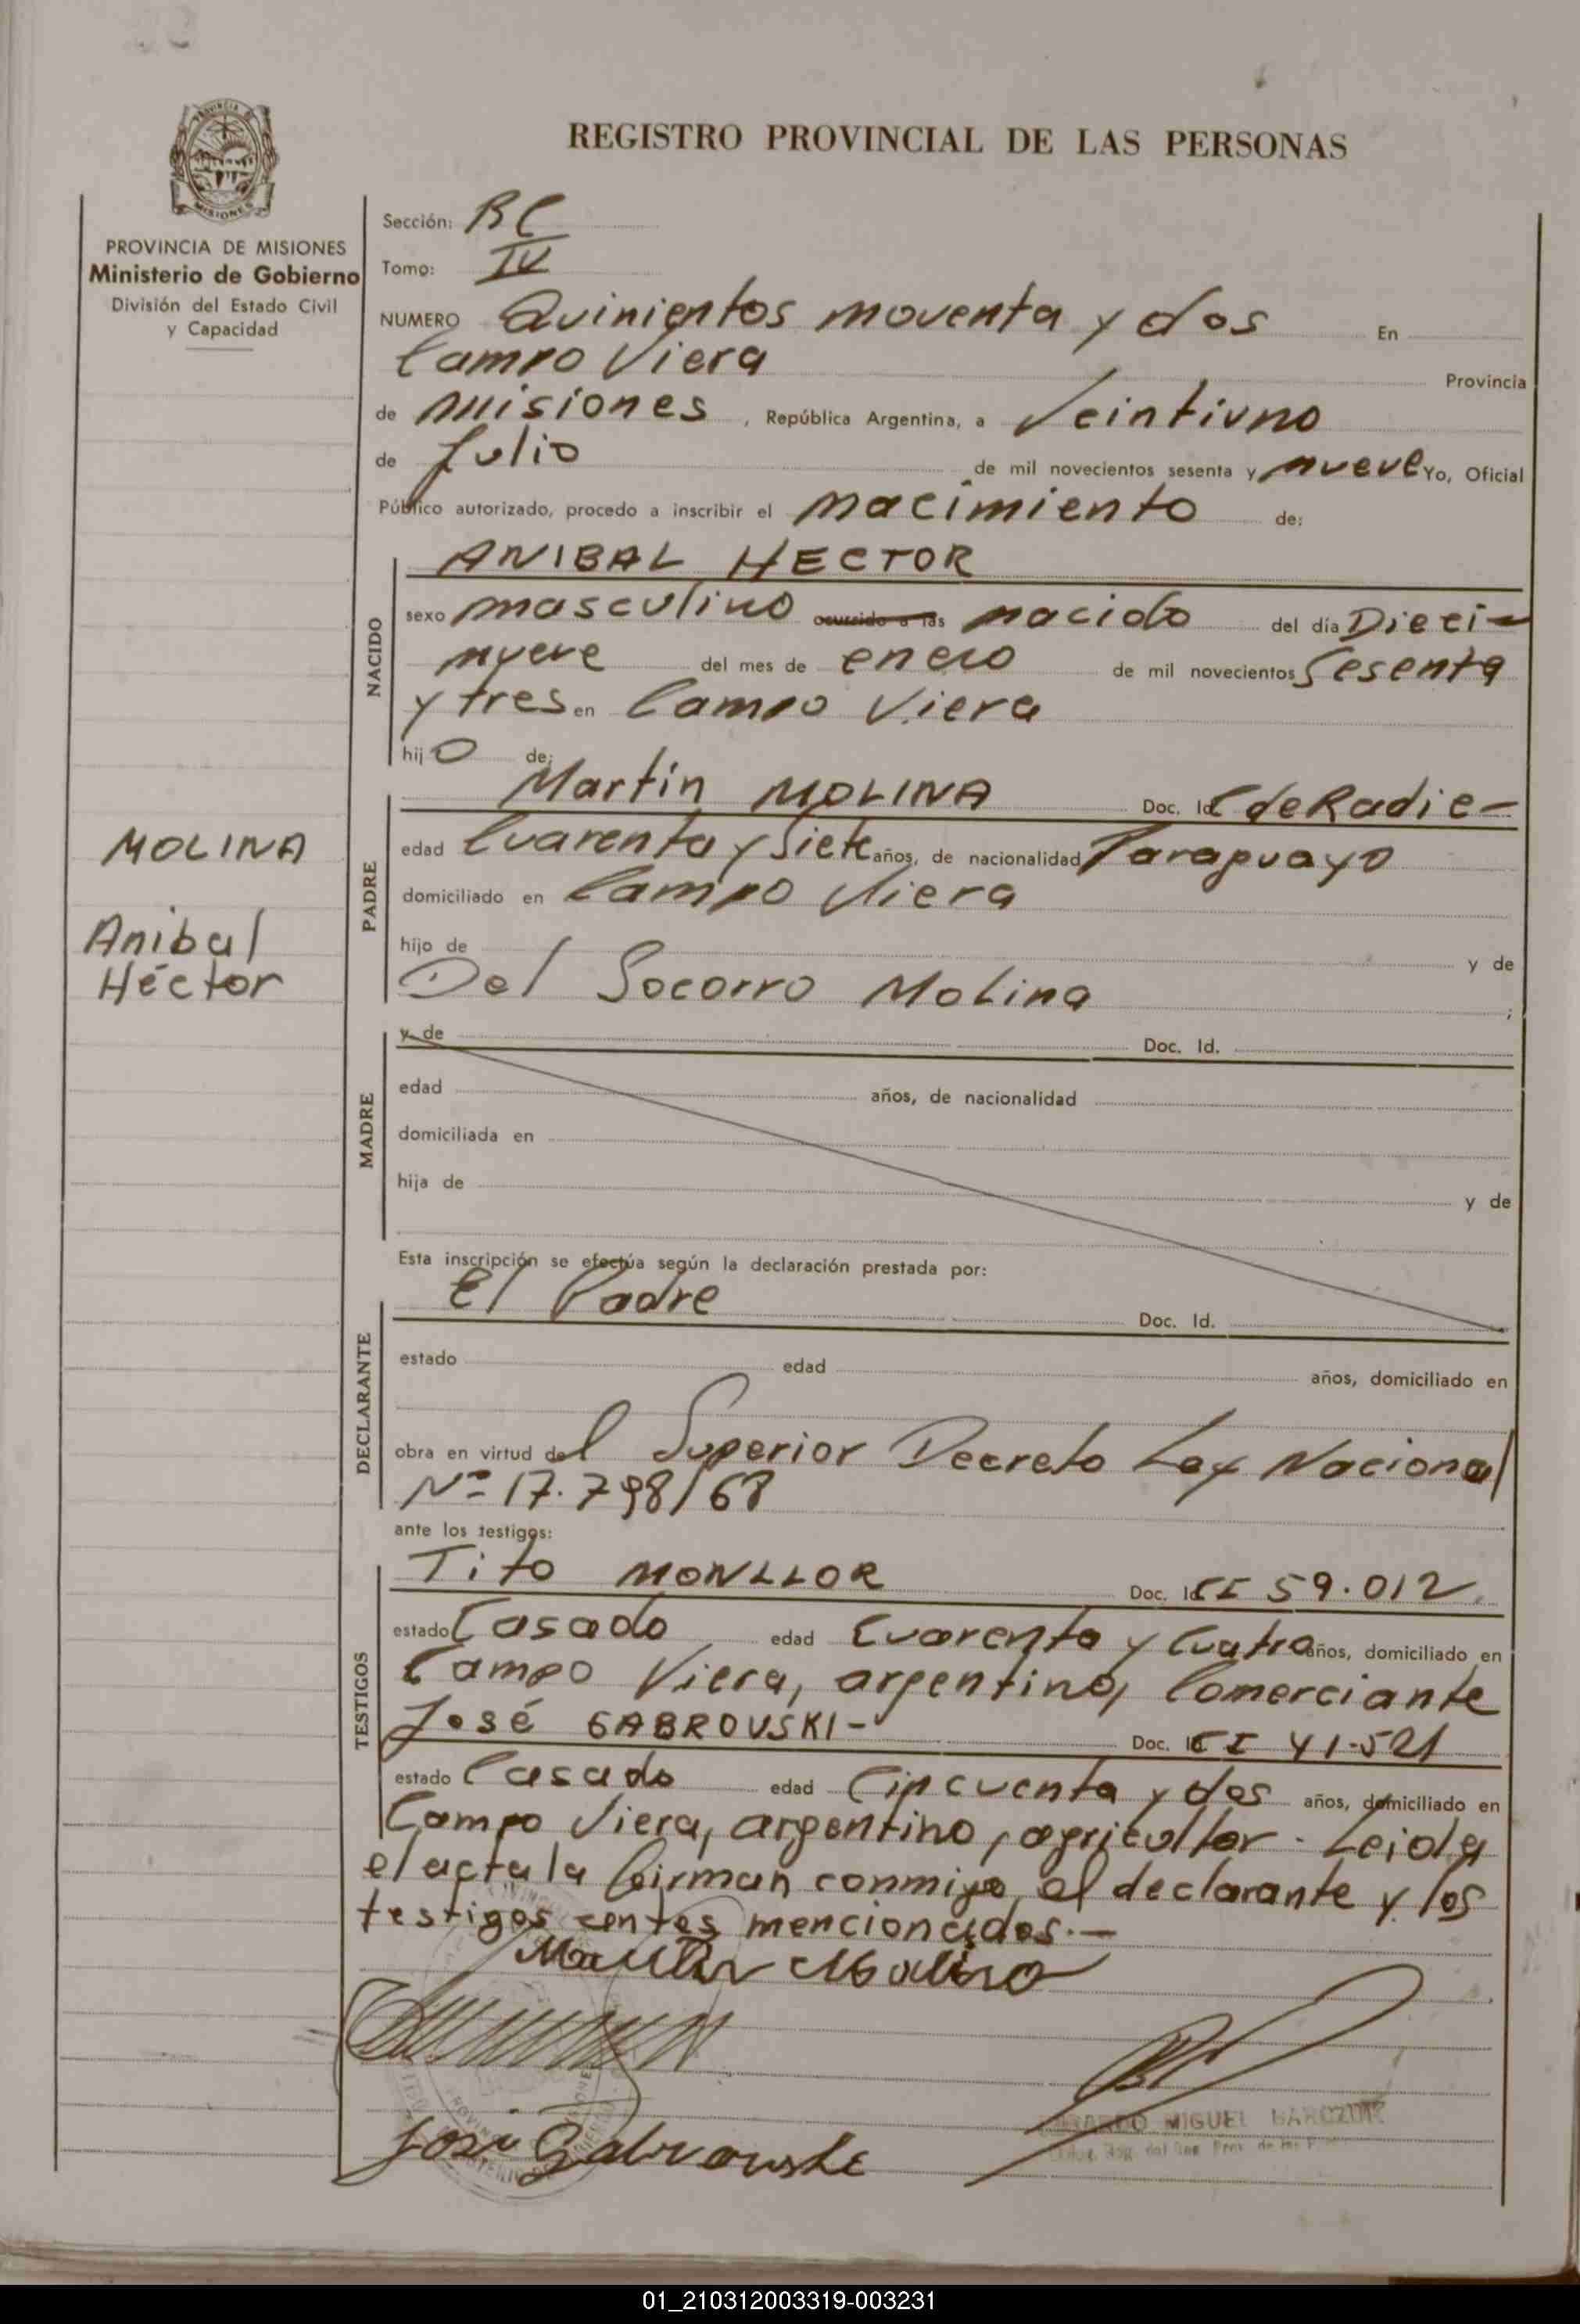 REGISTRO PROVINCIAL DE LAS PERSONAS
PROVINCIA DE MISIONES
Ministerio de Gobierno
División del Estado Civil
y Capacidad
Sección: RC
Tomo: IV
NUMERO Quinientos noventa y dos En
Campo Viera Provincia
de Misiones, República Argentina, a Veintiuno
de Julio de mil novecientos sesenta y nueve Yo, Oficial
Público autorizado, procedo a inscribir el nacimiento de:
NACIDO
ANIBAL HECTOR
sexo masculino ocurrido a las nacido del día Dieci-
nueve del mes de enero de mil novecientos Sesenta
y tres en Campo Viera
hijo de:
MOLINA
Anibal
Héctor
PADRE
Martín MOLINA Doc. Id. C de Radic-
edad Cuarenta y Siete años, de nacionalidad Paraguayo
domiciliado en Campo Viera
hijo de y de
Del Socorro Molina ;
MADRE
y de Doc. Id.
edad años, de nacionalidad
domiciliada en
hija de y de
Esta inscripción se efectúa según la declaración prestada por:
DECLARANTE
El Padre Doc. Id.
estado edad años, domiciliado en
obra en virtud del Superior Decreto Ley Nacional
Nº 17.798/68
ante los testigos:
TESTIGOS
Tito MONLLOR Doc. Id. CI 59.012
estado Casado edad Cuarenta y Cuatro años, domiciliado en
Campo Viera, argentino, Comerciante
José GABROVSKI- Doc. Id. CI 41-521
estado Casado edad Cincuenta y dos años, domiciliado en
Campo Viera, argentino, agricultor. Leida
el acta la firman conmigo el declarante y los
testigos antes mencionados.-
MIGUEL
01_210312003319-003231